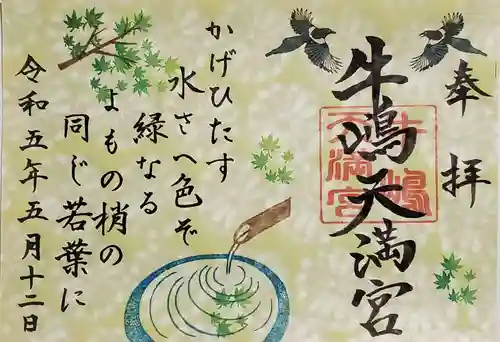 奉拝
牛嶋天満宮
牛嶋天満宮
かげひたす
水さへ色ぞ
緑なる
よもの梢の
同じ若葉に
令和五年五月十二日